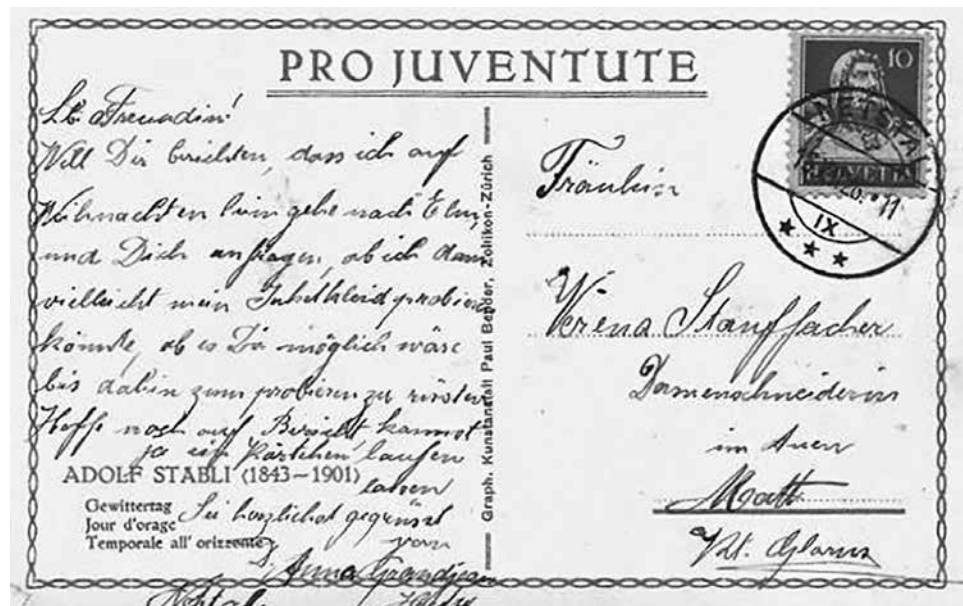 PRO JUVENTUTE
Lb. Freundin!
Will Dir berichten, dass ich auf
Weihnachten heim gehe nach Elm,
und Dich anfragen, ob ich dann
vielleicht mein Jubelkleid probieren
könnte, ob es Dir möglich wäre
bis dahin zum probieren zu rüsten
Hoffe noch auf Bericht kannst
ja ein Kärtchen laufen
lassen
Sei herzlichst gegrüsst
von
Anna Grandjean
Netstal
ADOLF STÄBLI (1843–1901)
Gewittertag
Jour d'orage
Temporale all' orizzonte
Graph. Kunstanstalt Paul Bender, Zollikon-Zürich
10
HELVETIA
NETSTAL
IX
Fräulein
Verena Stauffacher
Damenschneiderin
im Auen
Matt
Kt. Glarus